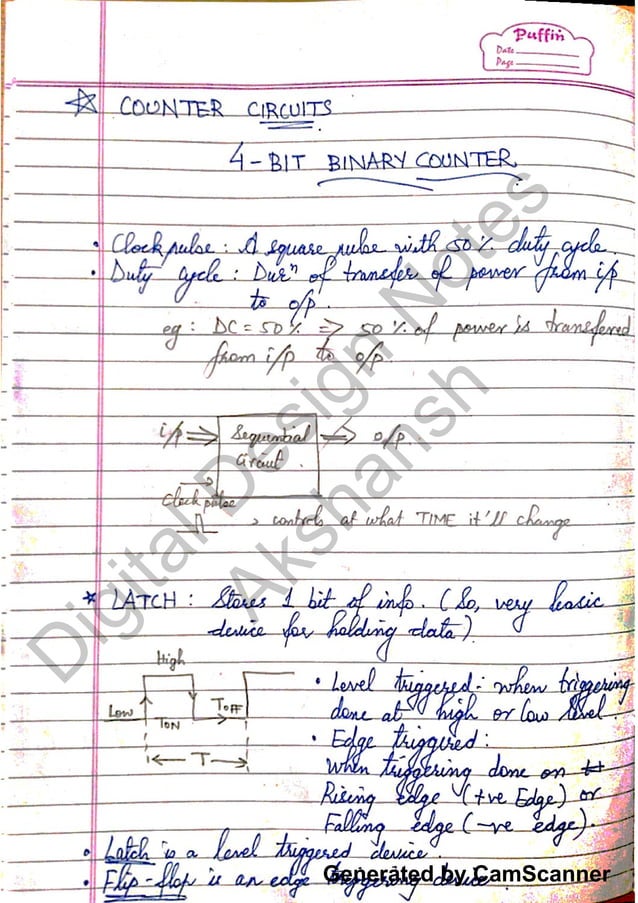 Puffin
Date
Page
COUNTER CIRCUITS
4-BIT BINARY COUNTER
• Clock pulse : A square pulse with 50% duty cycle.
• Duty cycle : Durⁿ of transfer of power from i/p
to o/p.
eg : DC = 50% => 50% of power is transferred
from i/p to o/p.
i/p => Sequential => o/p.
Circuit.
Clock pulse
> controls at what TIME it'll change
* LATCH : Stores 1 bit of info. (So, very basic
device for holding data).
High
Low
TON
TOFF
T
• Level triggered :- when triggering
done at high or low level.
• Edge triggered :
When triggering done on
Rising edge (+ve Edge) or
Falling edge (-ve edge).
• Latch is a level triggered device.
• Flip-flop is an edge triggering device.
Digital Design Notes
Akshansh
Generated by CamScanner